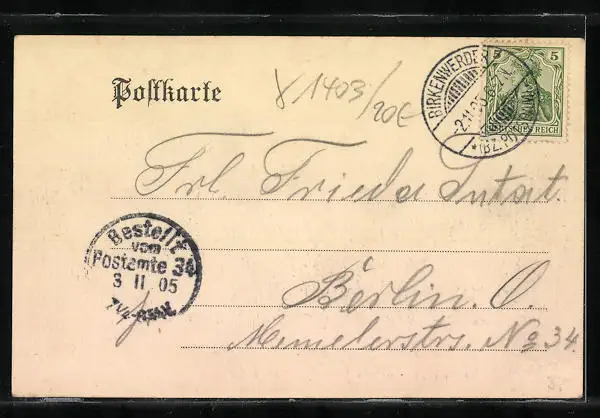 Postkarte
X 1403/20E
BIRKENWERDER
2.11.05
*(BZ. P.)
5 5
DEUTSCHES REICH
Frl. Frieda Sutat.
Bestellt
vom
Postamte 34
3 11 05
Berlin. O.
Memelerstrs. No 34.